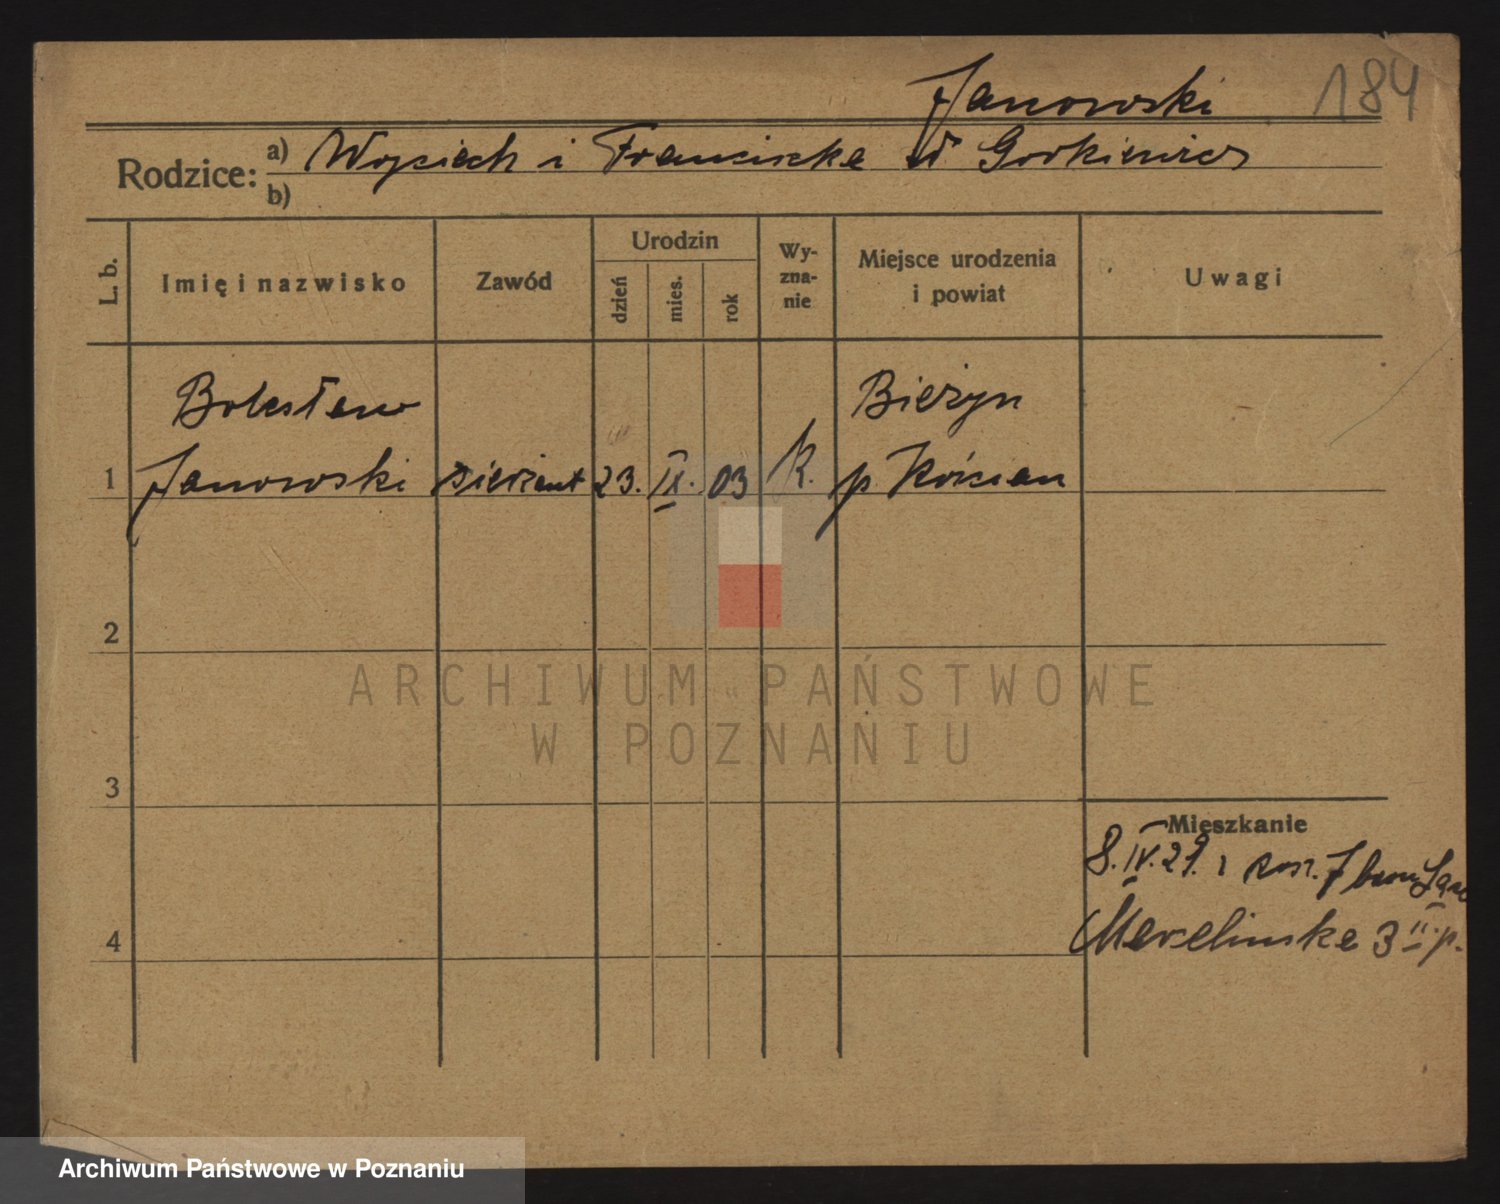 Janowski 184
Rodzice: a) Wojciech i Franciszka d Gorkiewicz
b)
L. b.
Imię i nazwisko
Zawód
Urodzin
dzień
mies.
rok
Wy-
zna-
nie
Miejsce urodzenia
i powiat
Uwagi
Bolesław
Bieżyn
1 Janowski sierżant 23. IX. 03 K. p Kościan
2
3
4
ARCHIWUM PAŃSTWOWE
W POZNANIU
Mieszkanie
8. IV. 29. z kosz. J
Marcelinska 3 II. p.
Archiwum Państwowe w Poznaniu